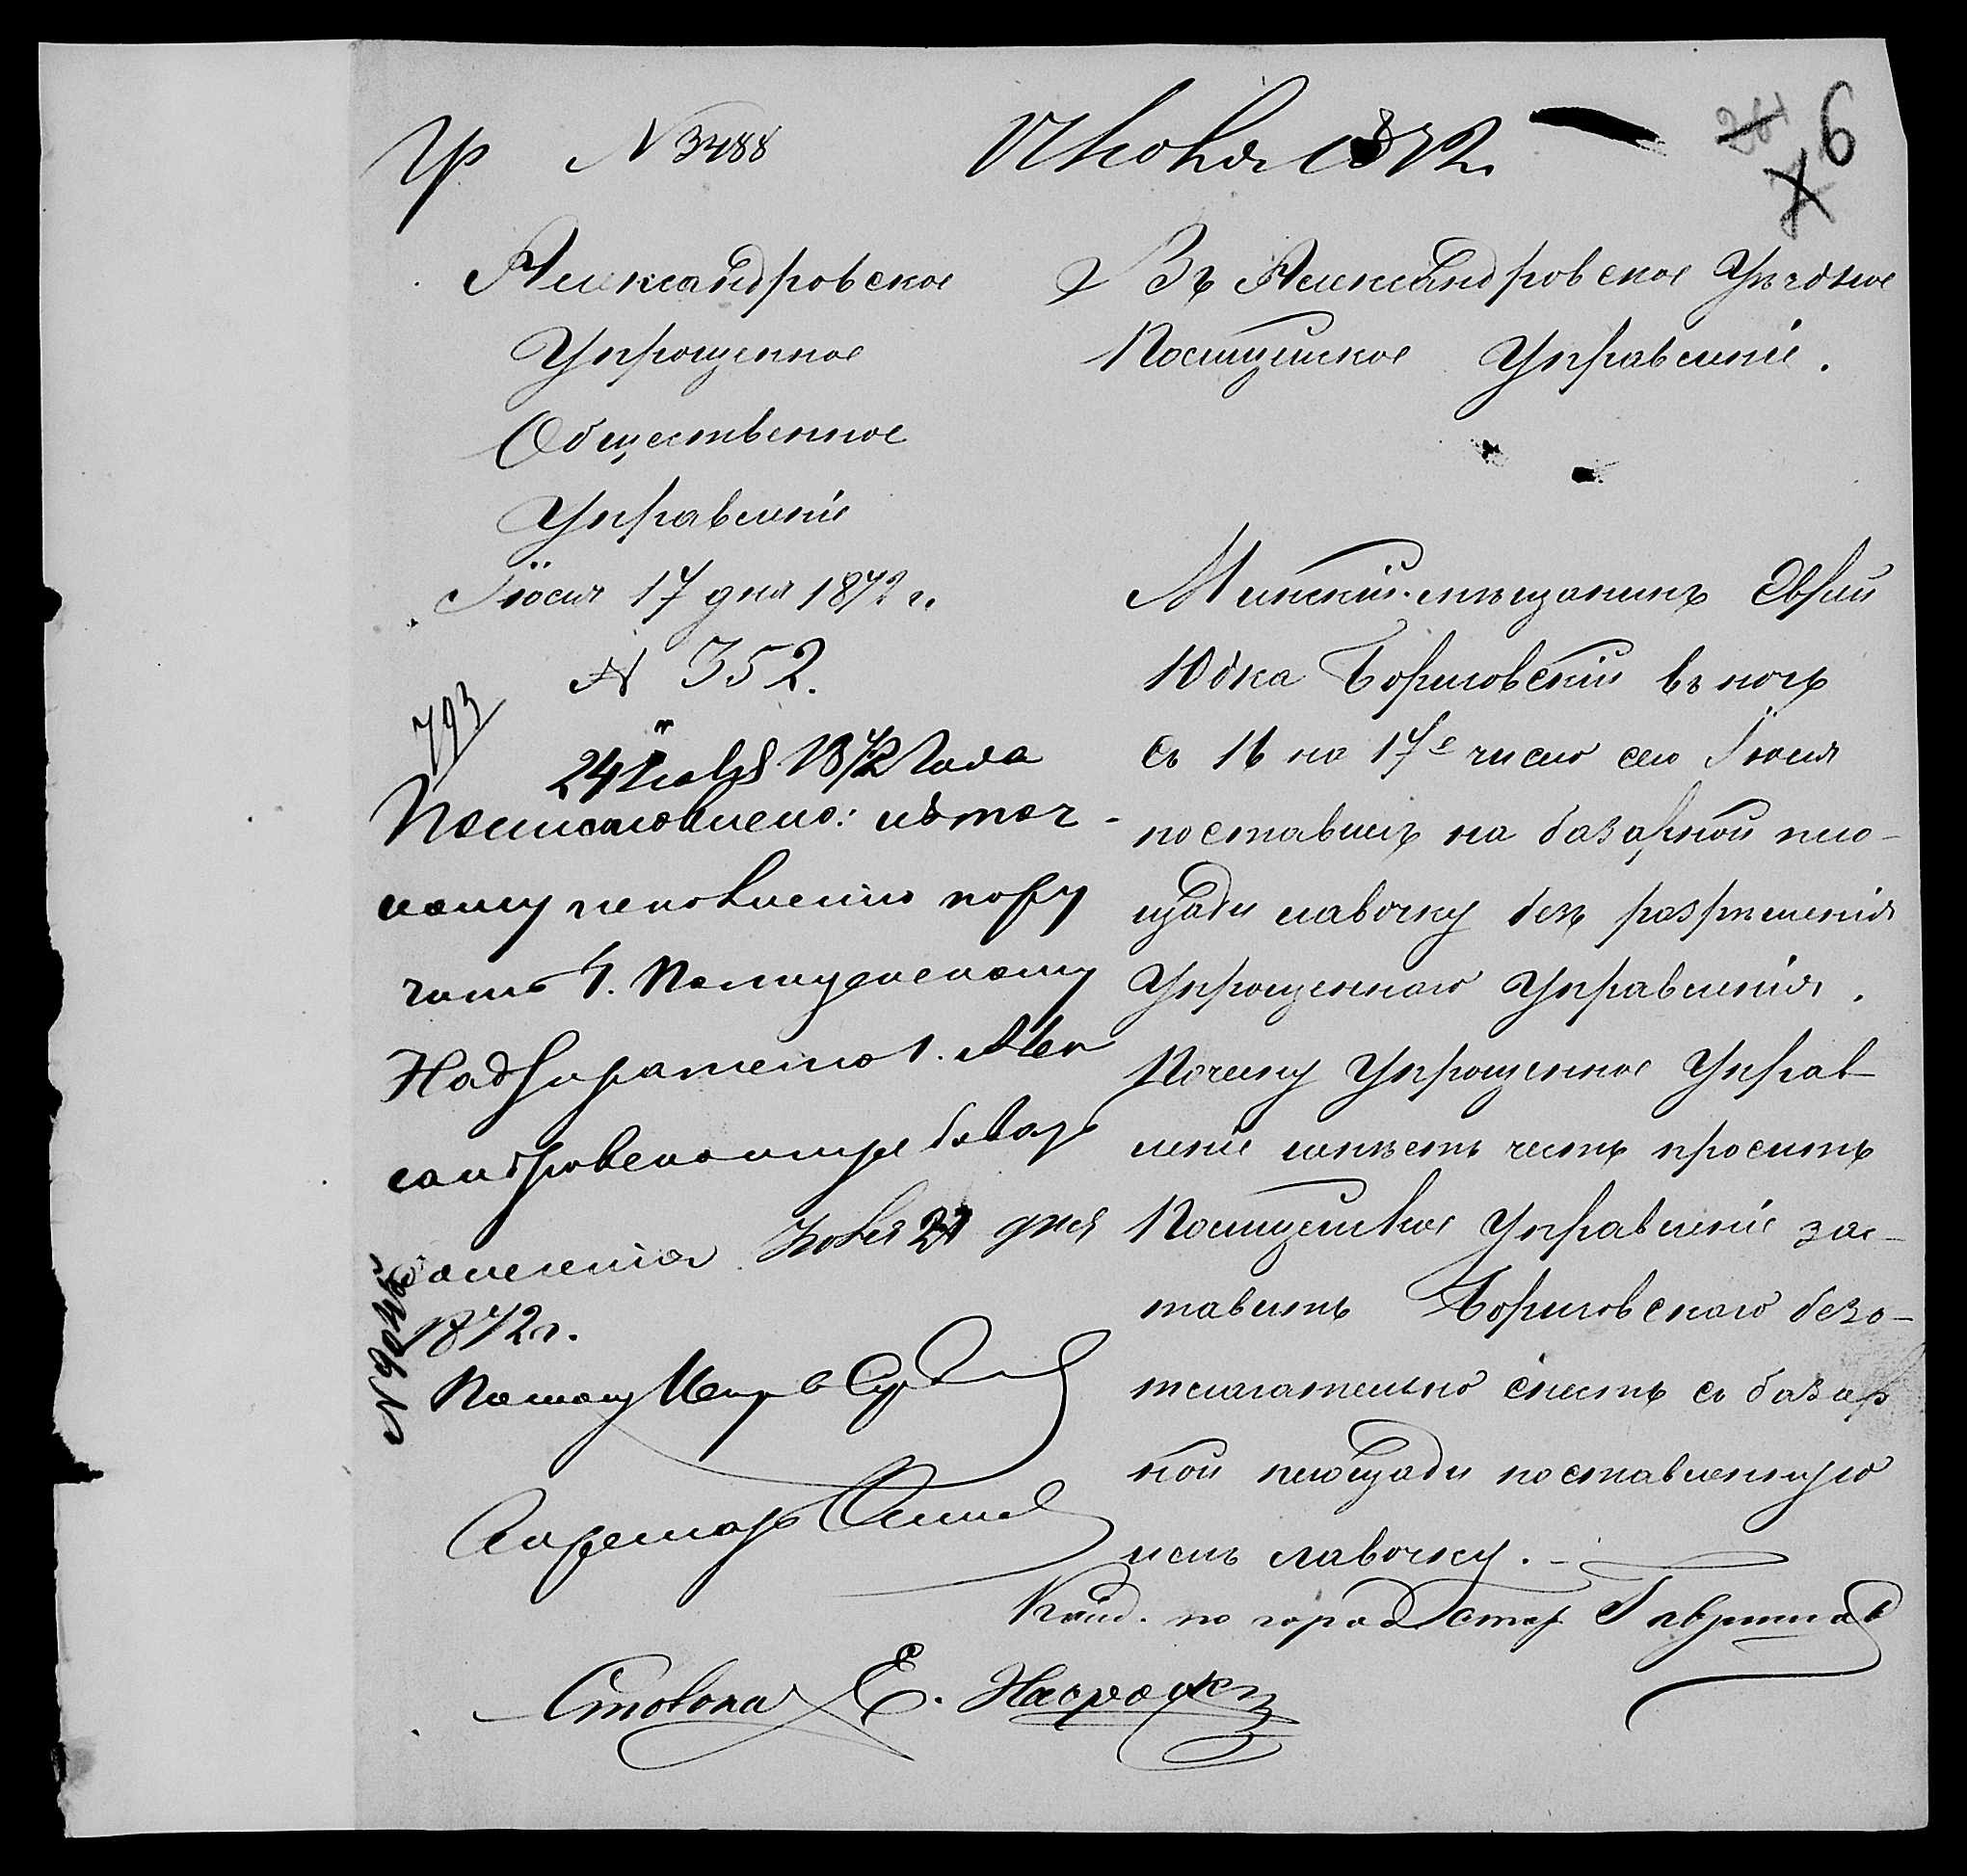 № 3488
Июня 1872
6
Александровское
Упрощенное
Общественное
Управленіе
Іюня 17 дня 1872 г.
№ 352.
793
24 1872 года
Постановлено: къ точ-
ному исполненію пору
чить Г. Полицейскому
Надзирателю г. Алек
сандровска
Іюня 21 дня
1872 г.
Помощ Испр
Секретарь
Столона Е.
Въ Александровское Уѣздное
Полицейское Управленіе.
Минскій мѣщанинъ Еврей
Юдка Борисовскій въ ночь
съ 16 на 17е число сего Іюня
поставилъ на базарной пло-
щади лавочку безъ разрѣшенія
Упрощеннаго Управленія.
Почему Упрощенное Управ
леніе имѣетъ честь просить
Полицейское Управленіе зас-
тавить Борисовскаго безо-
тлагательно снесть съ базар
ной площади поставленную
имъ лавочку.-
Канд. по город стар Гаврилов